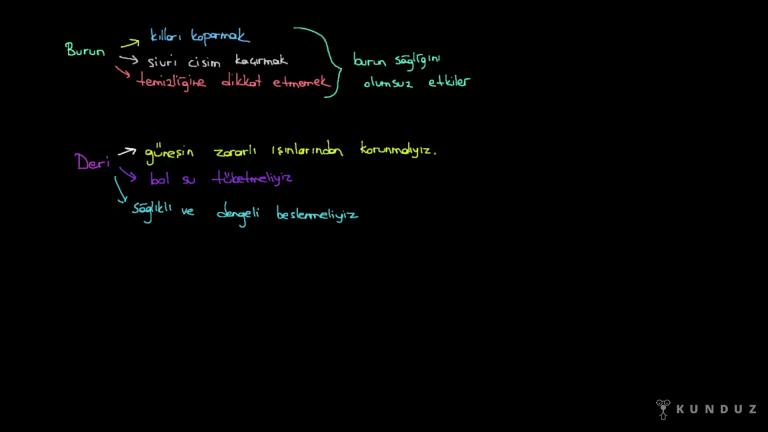 Burun
kılları koparmak
sivri cisim kaçırmak
temizliğine dikkat etmemek
burun sağlığını
olumsuz etkiler
Deri
güneşin zararlı ışınlarından korunmalıyız.
bol su tüketmeliyiz
sağlıklı ve dengeli beslenmeliyiz
KUNDUZ